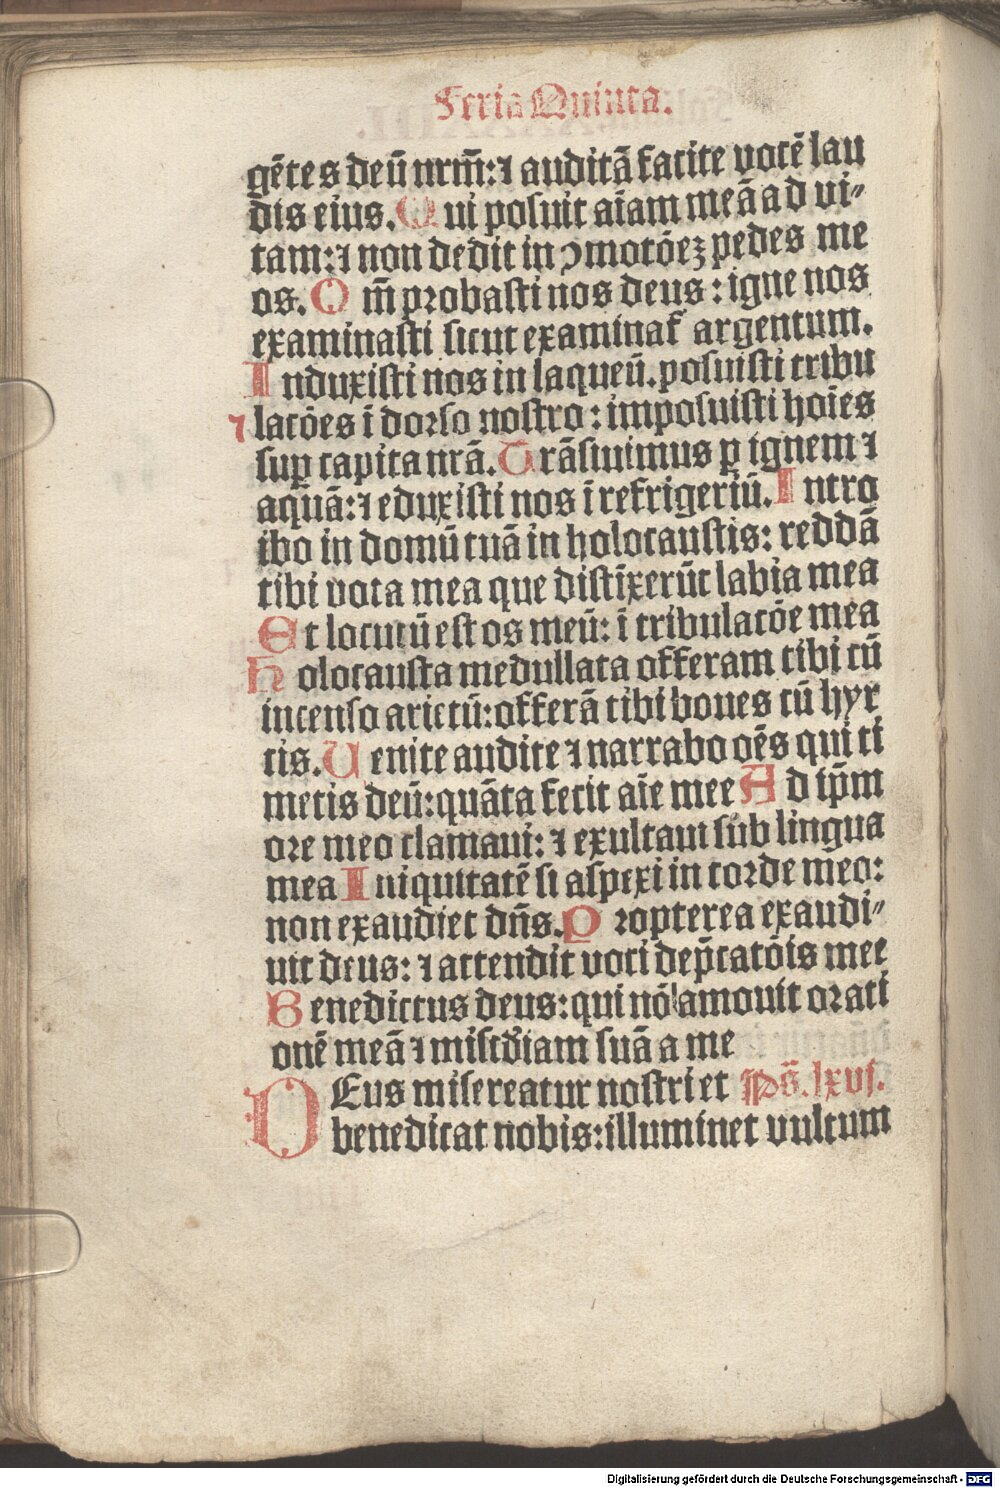 Feria Quinta.
gētes deū nrm̄: ⁊ auditā facite vocē lau
dis eius. Qui posuit aīam meā ad vi⸗
tam: ⁊ non dedit in ↄmotōeꝫ pedes me
os. Qm̄ probasti nos deus: igne nos
examinasti sicut examinat᷑ argentum.
Induxisti nos in laqueū. posuisti tribu
⁊ latōes ī dorso nostro: imposuisti hoīes
suꝑ capita nrā. Trāsiuimus ꝑ ignem ⁊
aquā: ⁊ eduxisti nos ī refrigeriū. Intro
ibo in domū tuā in holocaustis: reddā
tibi vota mea que distīxerūt labia mea
Et locutū est os meū: ī tribulatōe mea
Holocausta medullata offeram tibi cū
incenso arietū: offerā tibi boues cū hyr
cis. Uenite audite ⁊ narrabo oēs qui ti
metis deū: quāta fecit aīe mee Ad ip̄m
ore meo clamaui: ⁊ exultaui sub lingua
mea Iniquitatē si aspexi in corde meo:
non exaudiet dn̄s. Propterea exaudi⸗
uit deus: ⁊ attendit voci dep̄catōis mee
Benedictus deus: qui nō amouit orati
onē meā ⁊ miscd̄iam suā a me
DEus misereatur nostri et Ps̄. lxvj.
benedicat nobis: illuminet vultum
Digitalisierung gefördert durch die Deutsche Forschungsgemeinschaft - DFG